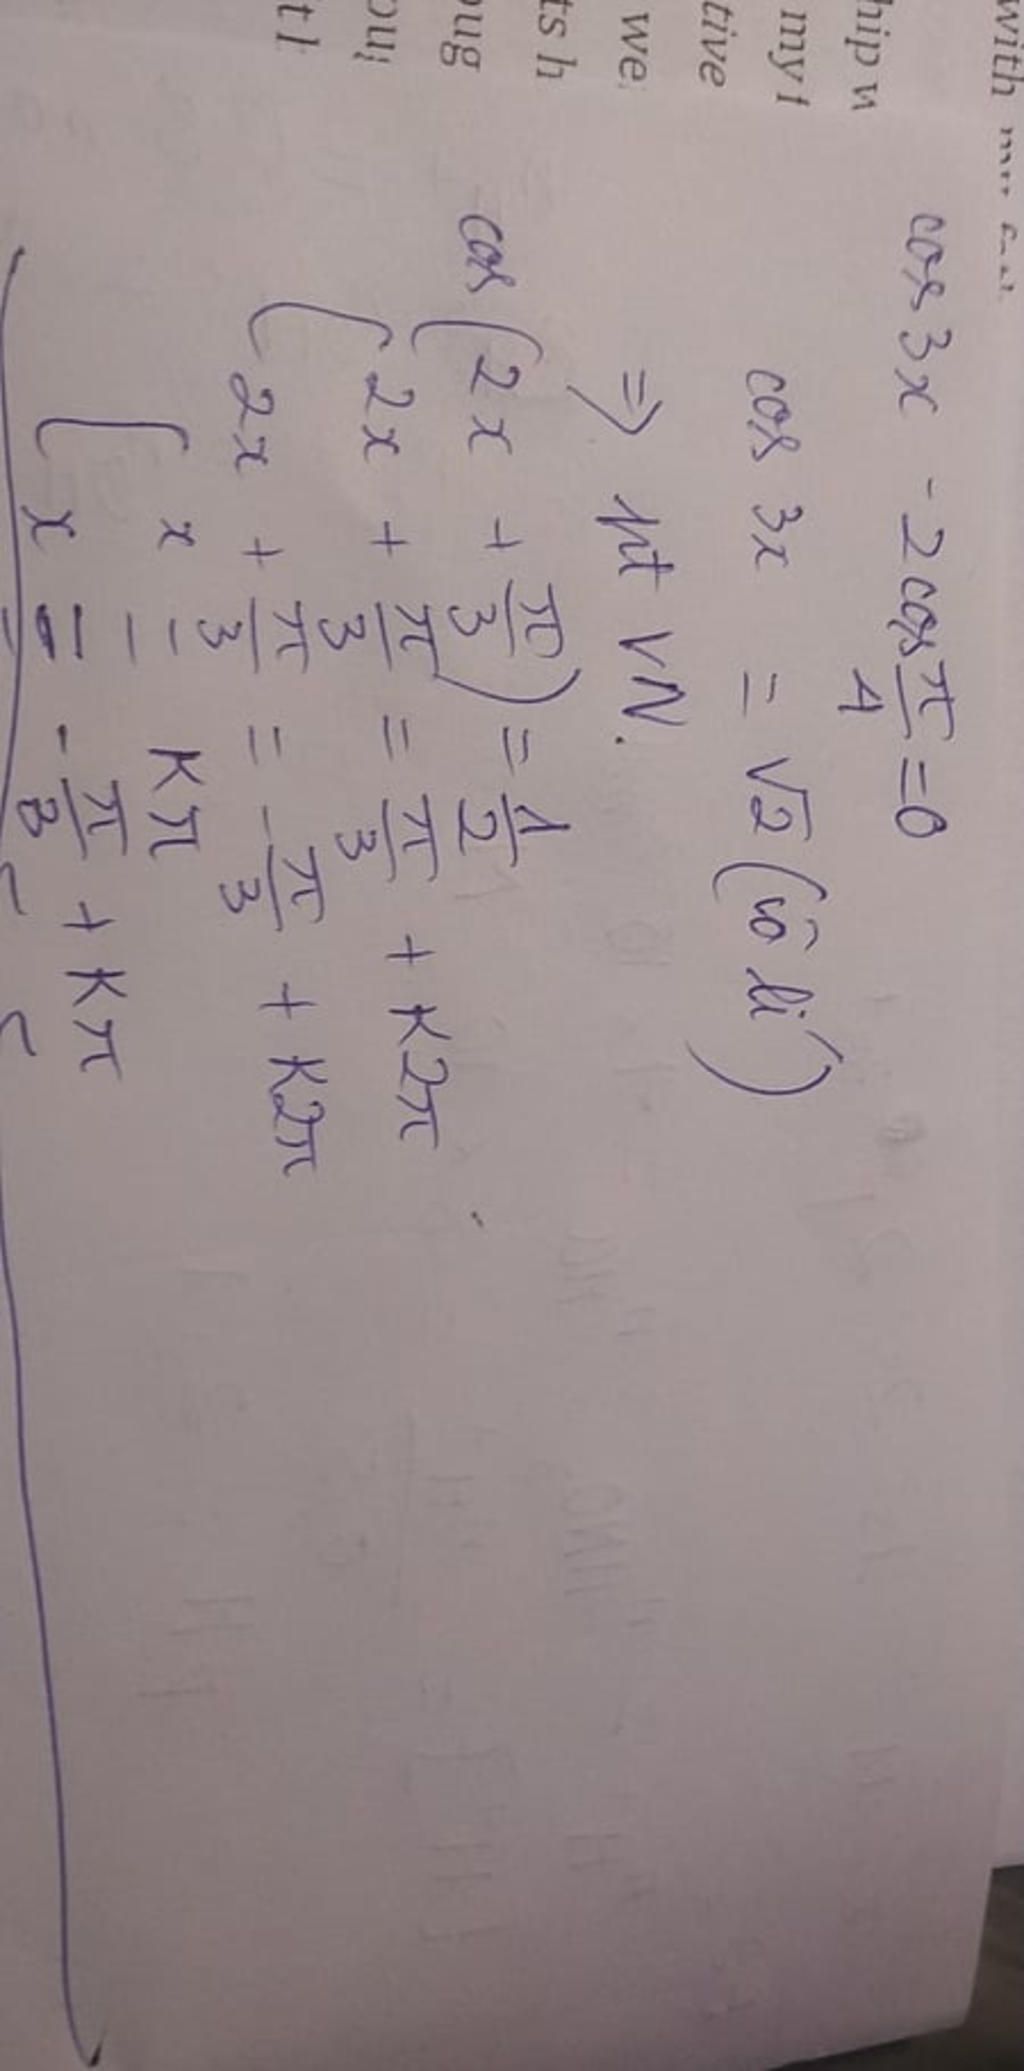 with
hip
my
tive
we
ts h
oug
t l
cos 3x - 2cos π/4 = 0
cos 3x = √2 (vô lí)
=> pt VN.
cos (2x + π/3) = 1/2
[ 2x + π/3 = π/3 + K2π
[ 2x + π/3 = - π/3 + K2π
[ x = Kπ
[ x = - π/3 + Kπ